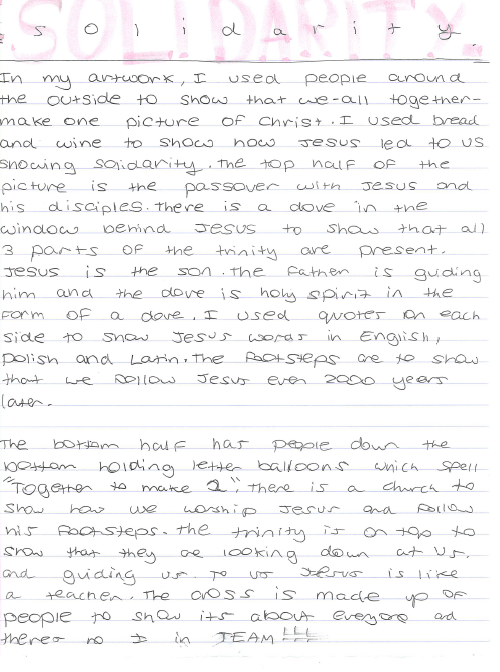 SOLIDARITY.
solidarity.
In my artwork, I used people around
the outside to show that we-all together-
make one picture of Christ. I used bread
and wine to show how Jesus led to us
showing solidarity. The top half of the
picture is the passover with Jesus and
his disciples. There is a dove in the
window behind Jesus to show that all
3 parts of the trinity are present.
Jesus is the son. The Father is guiding
him and the dove is holy spirit in the
form of a dove. I used quotes on each
side to show Jesus words in English,
polish and Latin. The footsteps are to show
that we follow Jesus even 2000 years
later.
The bottom half has people down the
bottom holding letter balloons which spell
"Together to make 1". There is a church to
show how we worship Jesus and follow
his footsteps. The trinity is on top to
show that they are looking down at us.
and guiding us. To us Jesus is like
a teacher. The cross is made up of
people to show its about everyone ad
theres no I in TEAM!!!